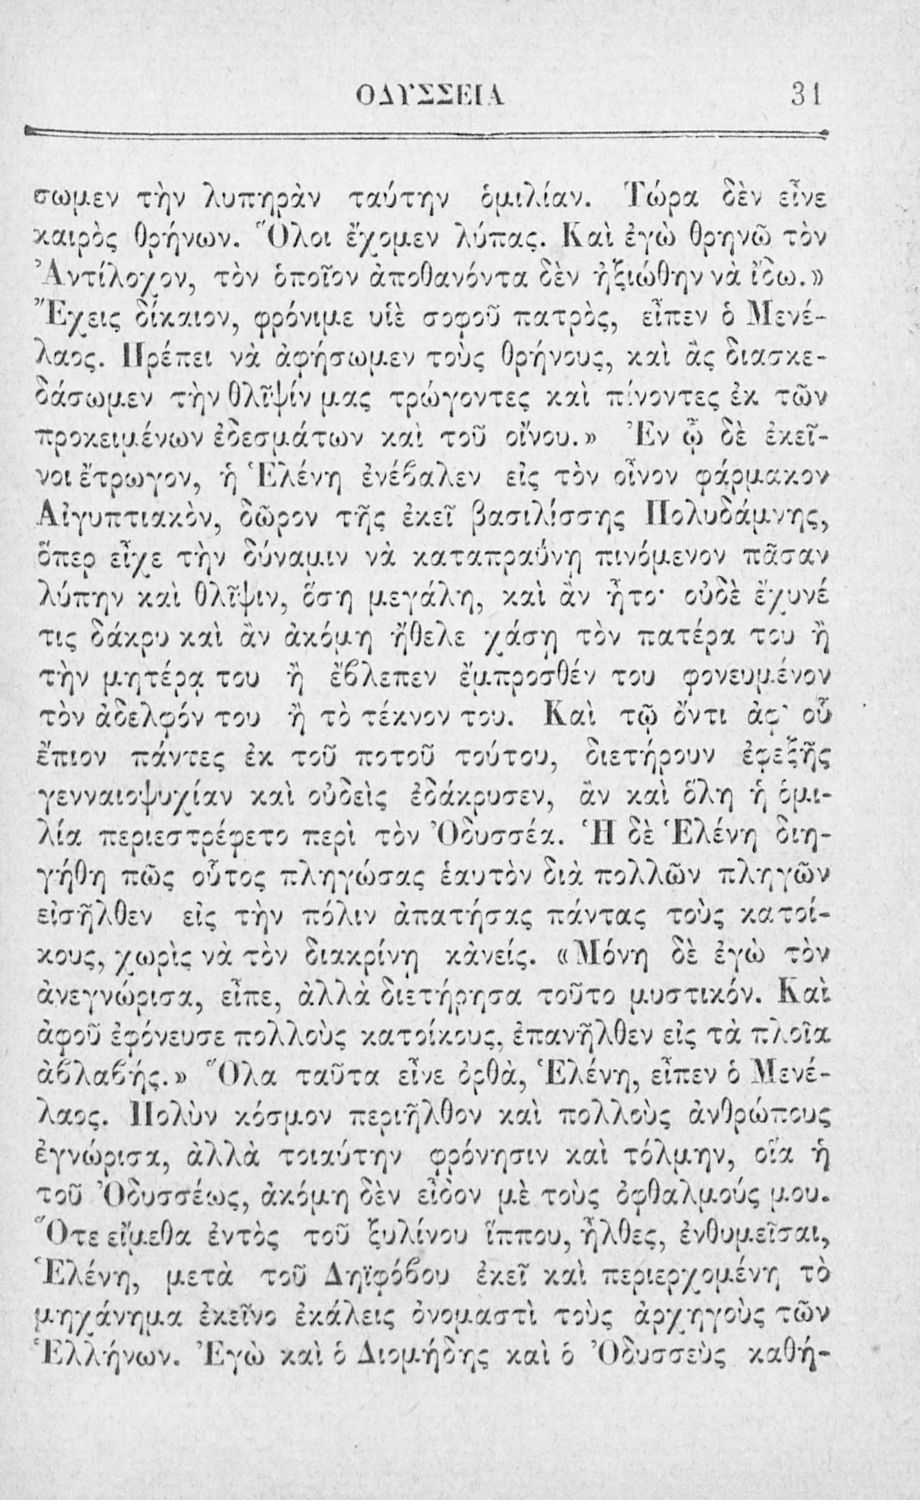 ΟΔΥΣΣΕΙΑ 31
σωμεν τὴν λυπηρὰν ταύτην ὁμιλίαν. Τώρα δὲν εἶνε
καιρὸς θρήνων. Ὅλοι ἔχομεν λύπας. Καὶ ἐγὼ θρηνῶ τὸν
Ἀντίλοχον, τὸν ὁποῖον ἀποθανόντα δὲν ἠξιώθην νὰ ἴδω.»
Ἔχεις δίκαιον, φρόνιμε υἱὲ σοφοῦ πατρὸς, εἶπεν ὁ Μενέ-
λαος. Πρέπει νὰ ἀφήσωμεν τοὺς θρήνους, καὶ ἂς διασκε-
δάσωμεν τὴν θλῖψίν μας τρώγοντες καὶ πίνοντες ἐκ τῶν
προκειμένων ἐδεσμάτων καὶ τοῦ οἴνου.» Ἐν ᾧ δὲ ἐκεῖ-
νοι ἔτρωγον, ἡ Ἑλένη ἐνέβαλεν εἰς τὸν οἶνον φάρμακον
Αἰγυπτιακὸν, δῶρον τῆς ἐκεῖ βασιλίσσης Πολυδάμνης,
ὅπερ εἶχε τὴν δύναμιν νὰ καταπραΰνῃ πινόμενον πᾶσαν
λύπην καὶ θλῖψιν, ὅση μεγάλη, καὶ ἂν ἦτο· οὐδὲ ἔχυνέ
τις δάκρυ καὶ ἂν ἀκόμη ἤθελε χάσῃ τὸν πατέρα του ἢ
τὴν μητέρα του ἢ ἔβλεπεν ἔμπροσθέν του φονευμένον
τὸν ἀδελφόν του ἢ τὸ τέκνον του. Καὶ τῷ ὄντι ἀφ' οὗ
ἔπιον πάντες ἐκ τοῦ ποτοῦ τούτου, διετήρουν ἐφεξῆς
γενναιοψυχίαν καὶ οὐδεὶς ἐδάκρυσεν, ἂν καὶ ὅλη ἡ ὁμι-
λία περιεστρέφετο περὶ τὸν Ὀδυσσέα. Ἡ δὲ Ἑλένη διη-
γήθη πῶς οὗτος πληγώσας ἑαυτὸν διὰ πολλῶν πληγῶν
εἰσῆλθεν εἰς τὴν πόλιν ἀπατήσας πάντας τοὺς κατοί-
κους, χωρὶς νὰ τὸν διακρίνῃ κἀνείς. «Μόνη δὲ ἐγὼ τὸν
ἀνεγνώρισα, εἶπε, ἀλλὰ διετήρησα τοῦτο μυστικόν. Καὶ
ἀφοῦ ἐφόνευσε πολλοὺς κατοίκους, ἐπανῆλθεν εἰς τὰ πλοῖα
ἀβλαβής.» Ὅλα ταῦτα εἶνε ὀρθὰ, Ἑλένη, εἶπεν ὁ Μενέ-
λαος. Πολὺν κόσμον περιῆλθον καὶ πολλοὺς ἀνθρώπους
ἐγνώρισα, ἀλλὰ τοιαύτην φρόνησιν καὶ τόλμην, οἵα ἡ
τοῦ Ὀδυσσέως, ἀκόμη δὲν εἶδον μὲ τοὺς ὀφθαλμούς μου.
Ὅτε εἴμεθα ἐντὸς τοῦ ξυλίνου ἵππου, ἦλθες, ἐνθυμεῖσαι,
Ἑλένη, μετὰ τοῦ Δηϊφόβου ἐκεῖ καὶ περιερχομένη τὸ
μηχάνημα ἐκεῖνο ἐκάλεις ὀνομαστὶ τοὺς ἀρχηγοὺς τῶν
Ἑλλήνων. Ἐγὼ καὶ ὁ Διομήδης καὶ ὁ Ὀδυσσεὺς καθή-